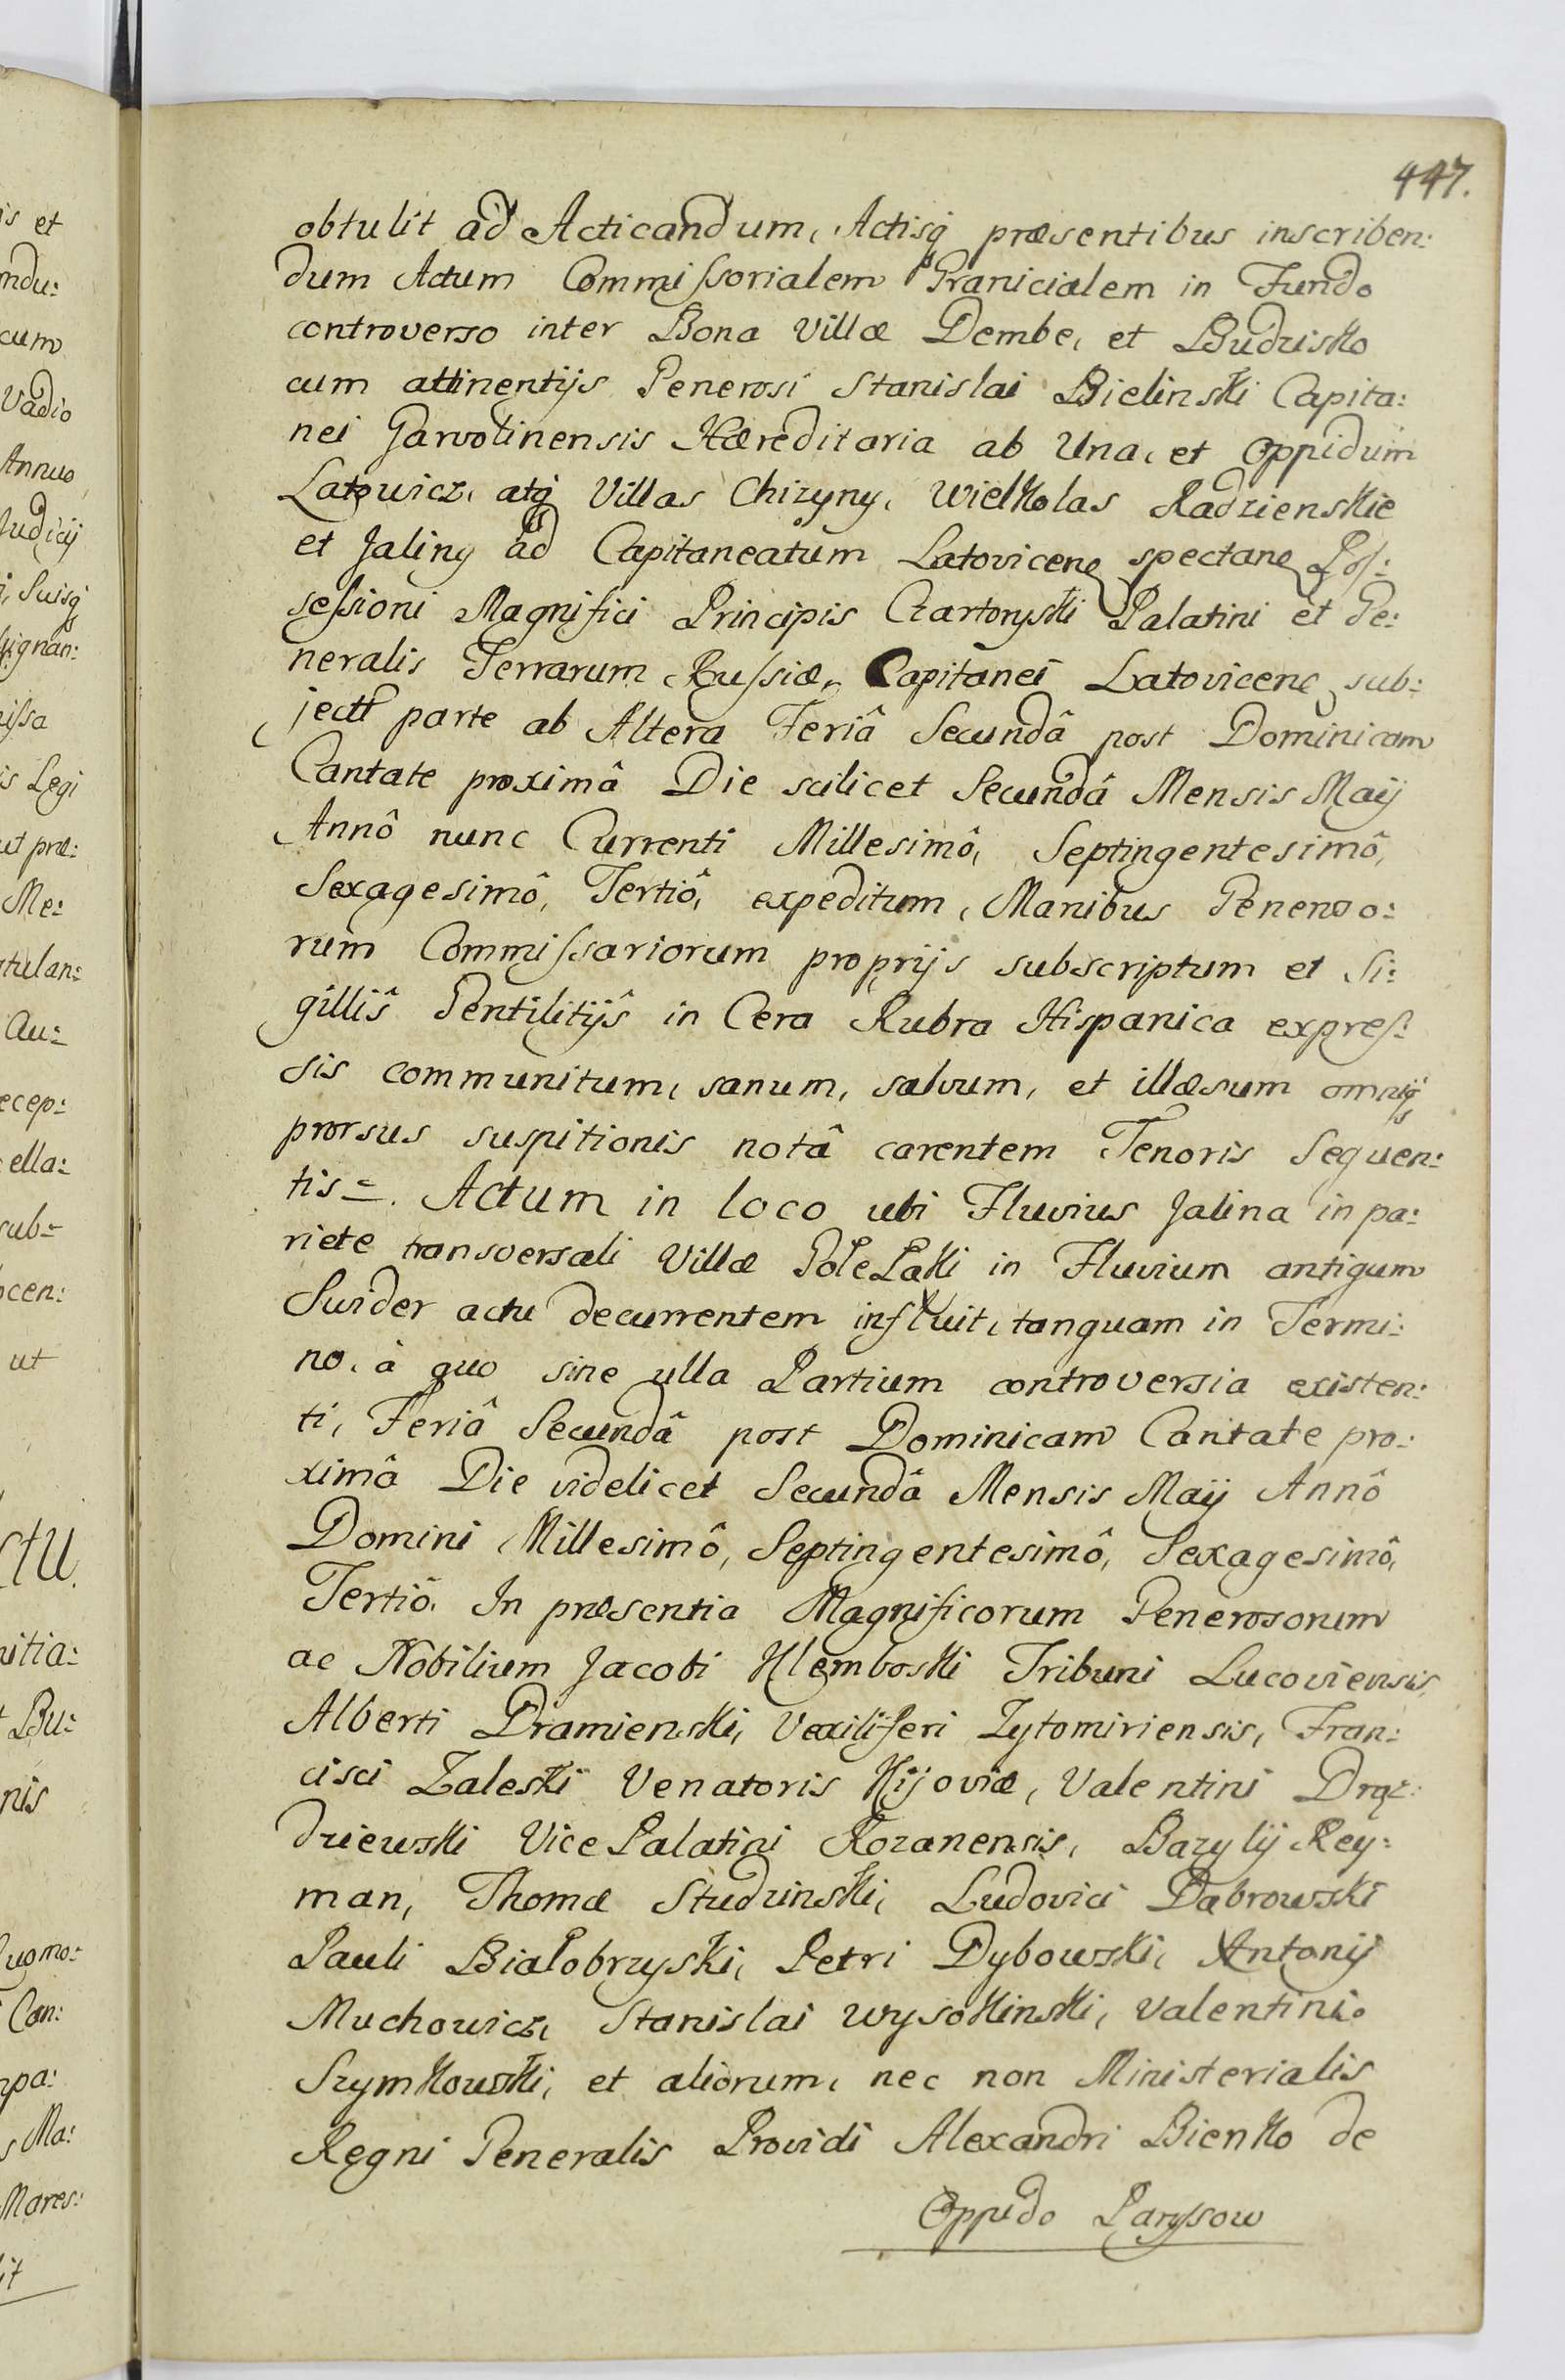 447.
is et
obtulit ad Acticandum, Actisq₃ præsentibus inscriben:
ndu:
dum Actum Commissorialem Granicialem in Fundo
cum
controverso inter Bona Villæ Dembe, et Budzisko
Vadio
cum attinentijs Generosi Stanislai Bielinski Capita:
Annuo
nei Garvolinensis Hæreditaria ab Una, et Oppidum
Judicij
Latowicz, atq₃ Villas Chizyny, Wielkolas Radzienskie
Suisq₃
et Jaliny ad Capitaneatum Latovicen spectan Pos:
signan:
sessioni Magnifici Principis Czartoryski Palatini et Ge:
issa
neralis Terrarum Russiæ, Capitanei Latovicen sub:
is Legi
ject parte ab Altera Feriâ Secundâ post Dominicam
ut præ:
Cantate proximâ Die scilicet Secundâ Mensis Maij
Me:
Annô nunc Currenti Millesimô, Septingentesimô,
tulan:
Sexagesimô, Tertiô, expeditum, Manibus Generoo:
au:
rum Commissariorum proprijs subscriptum et Si:
ecep:
gillis Gentilitijs in Cera Rubra Hispanica expres:
ella:
sis communitum, sanum, salvum, et illæsum omniq₃
sub=
prorsus suspitionis notâ carentem Tenoris Sequen:
ocen:
tis=. Actum in loco ubi Fluvius Jalina in pa:
ut
riete transversali Villæ Pole Łaki in Fluvium antiquum
Swider actu decurrentem influit, tanquam in Termi:
no, à quo sine ulla Partium controversia existen:
ti, Feriâ Secundâ post Dominicam Cantate pro:
ctu
ximâ Die videlicet Secundâ Mensis Maij Annô
nitia:
Domini Millesimô, Septingentesimô, Sexagesimô,
Bu:
Tertiô. In præsentia Magnificorum Generosorum
nis
ac Nobilium Jacobi Klemboski Tribuni Lucoviensis,
Alberti Dramienski, Vexiliferi Zytomiriensis, Fran:
cisci Zaleski Venatoris Kijoviæ, Valentini Drąż:
Quomo:
dziewski Vice Palatini Rozanensis, Bazylij Rey:
Can:
man, Thomæ Studzinski, Ludovici Dąbrowski
npa:
Pauli Białobrzyski, Petri Dybowski, Antonij
Ma:
Muchowicz, Stanislai Wysokinski, Valentini
Mares:
Szymkowski, et aliorum, nec non Ministerialis
it
Regni Generalis Providi Alexandri Bienko de
Oppido Paryssow